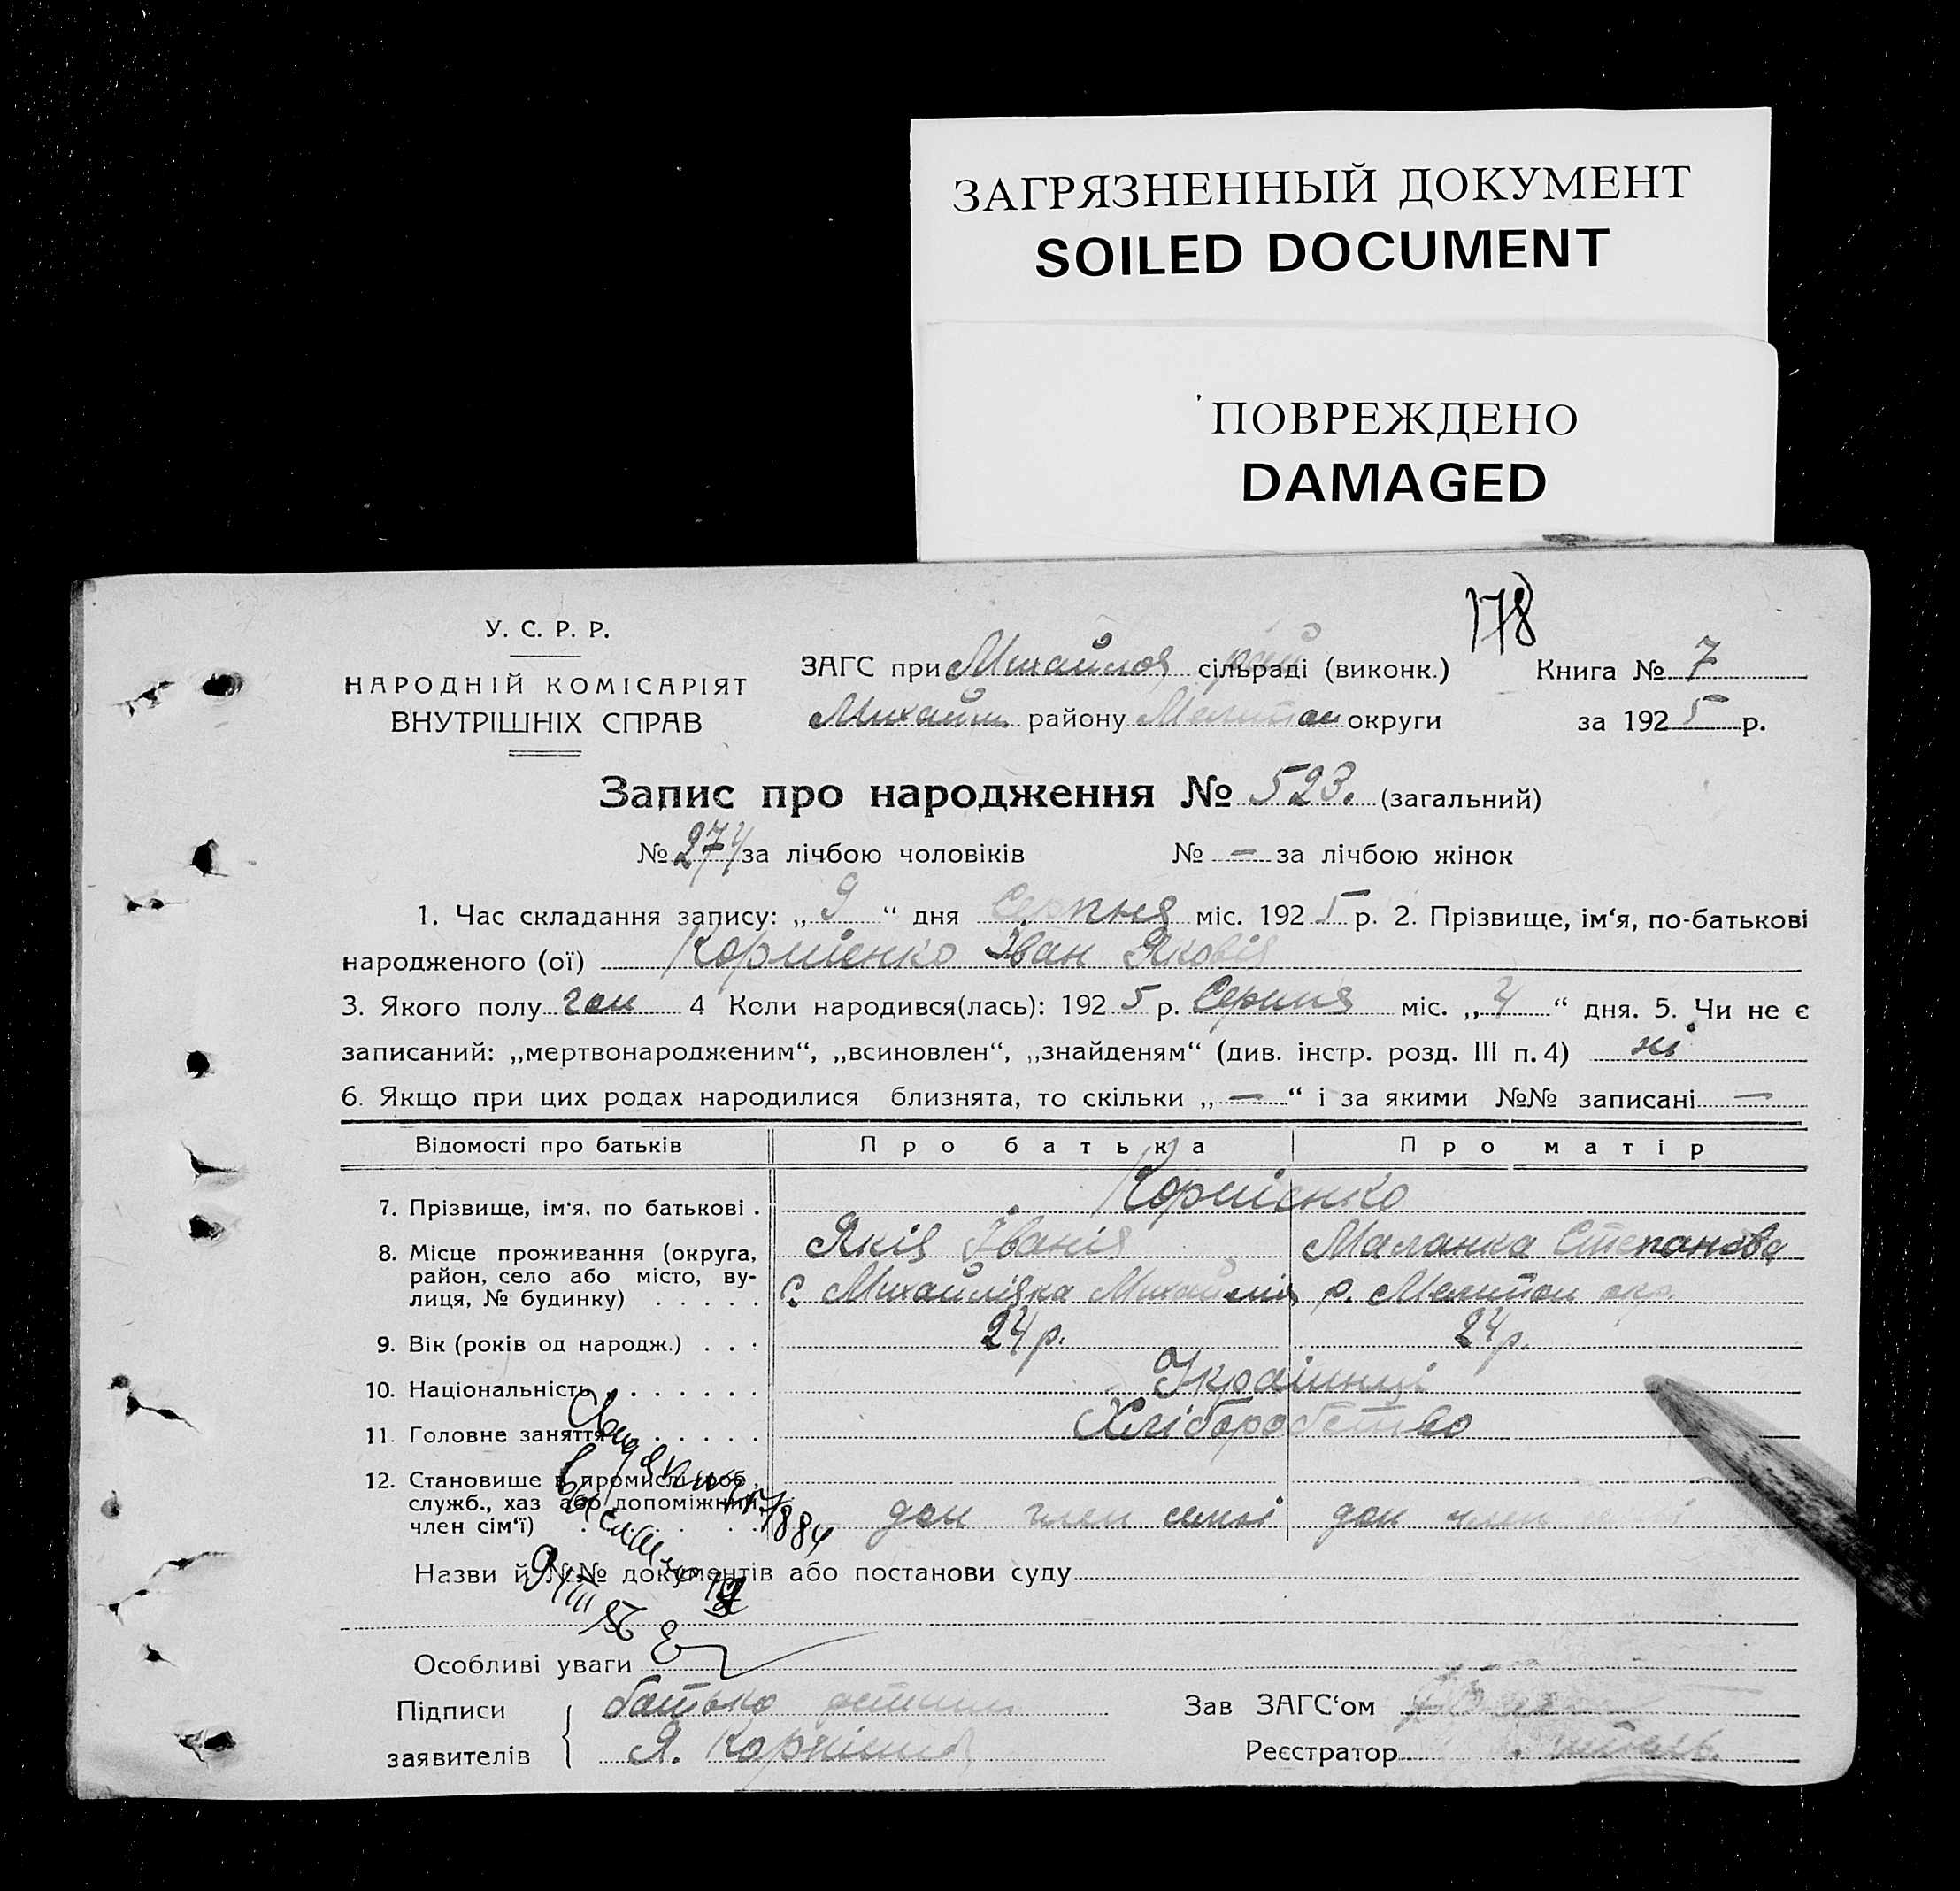 ЗАГРЯЗНЕННЫЙ ДОКУМЕНТ
SOILED DOCUMENT
ПОВРЕЖДЕНО
DAMAGED
178
У. С. Р. Р.
НАРОДНІЙ КОМІСАРІЯТ
ВНУТРІШНІХ СПРАВ
ЗАГС при Михайлов рай сільраді (виконк.)
Михайл району Мелитоп округи
Книга № 7
за 1925 р.
Запис про народження № 523. (загальний)
№ 274 за лічбою чоловіків № — за лічбою жінок
1. Час складання запису: „ 9 “ дня Серпня міс. 1925 р. 2. Прізвище, ім‘я, по-батькові
народженого (ої) Корнієнко Іван Яковів
3. Якого полу чол 4 Коли народився(лась): 1925 р. Серпня міс. „ 4 “ дня. 5. Чи не є
записаний: „мертвонародженим“, „всиновлен“, „знайденям“ (див. інстр. розд. III п. 4) ні
6. Якщо при цих родах народилися близнята, то скільки „ — “ і за якими №№ записані —
Відомості про батьків Про батька Про матір
7. Прізвище, ім‘я, по батькові . Корнієнко
Яків Іванів Маланка Степанова
8. Місце проживання (округа,
район, село або місто, ву-
лиця, № будинку) . . . . . с. Михайлівка Михайлів р. Мелитоп окр.
9. Вік (років од народж.) . . . 24 р. 24 р.
10. Національність . . . . . . . Українці
11. Головне заняття . . . . . . Хліборобство
12. Становище в промислі роб.
служб., хаз або допоміжний
член сім‘ї) доп член семьі доп член
1884
Назви й №№ документів або постанови суду
9/VIII
Особливі уваги
Підписи
заявителів
батько
Я. Корнієнко
Зав ЗАГС‘ом
Реєстратор